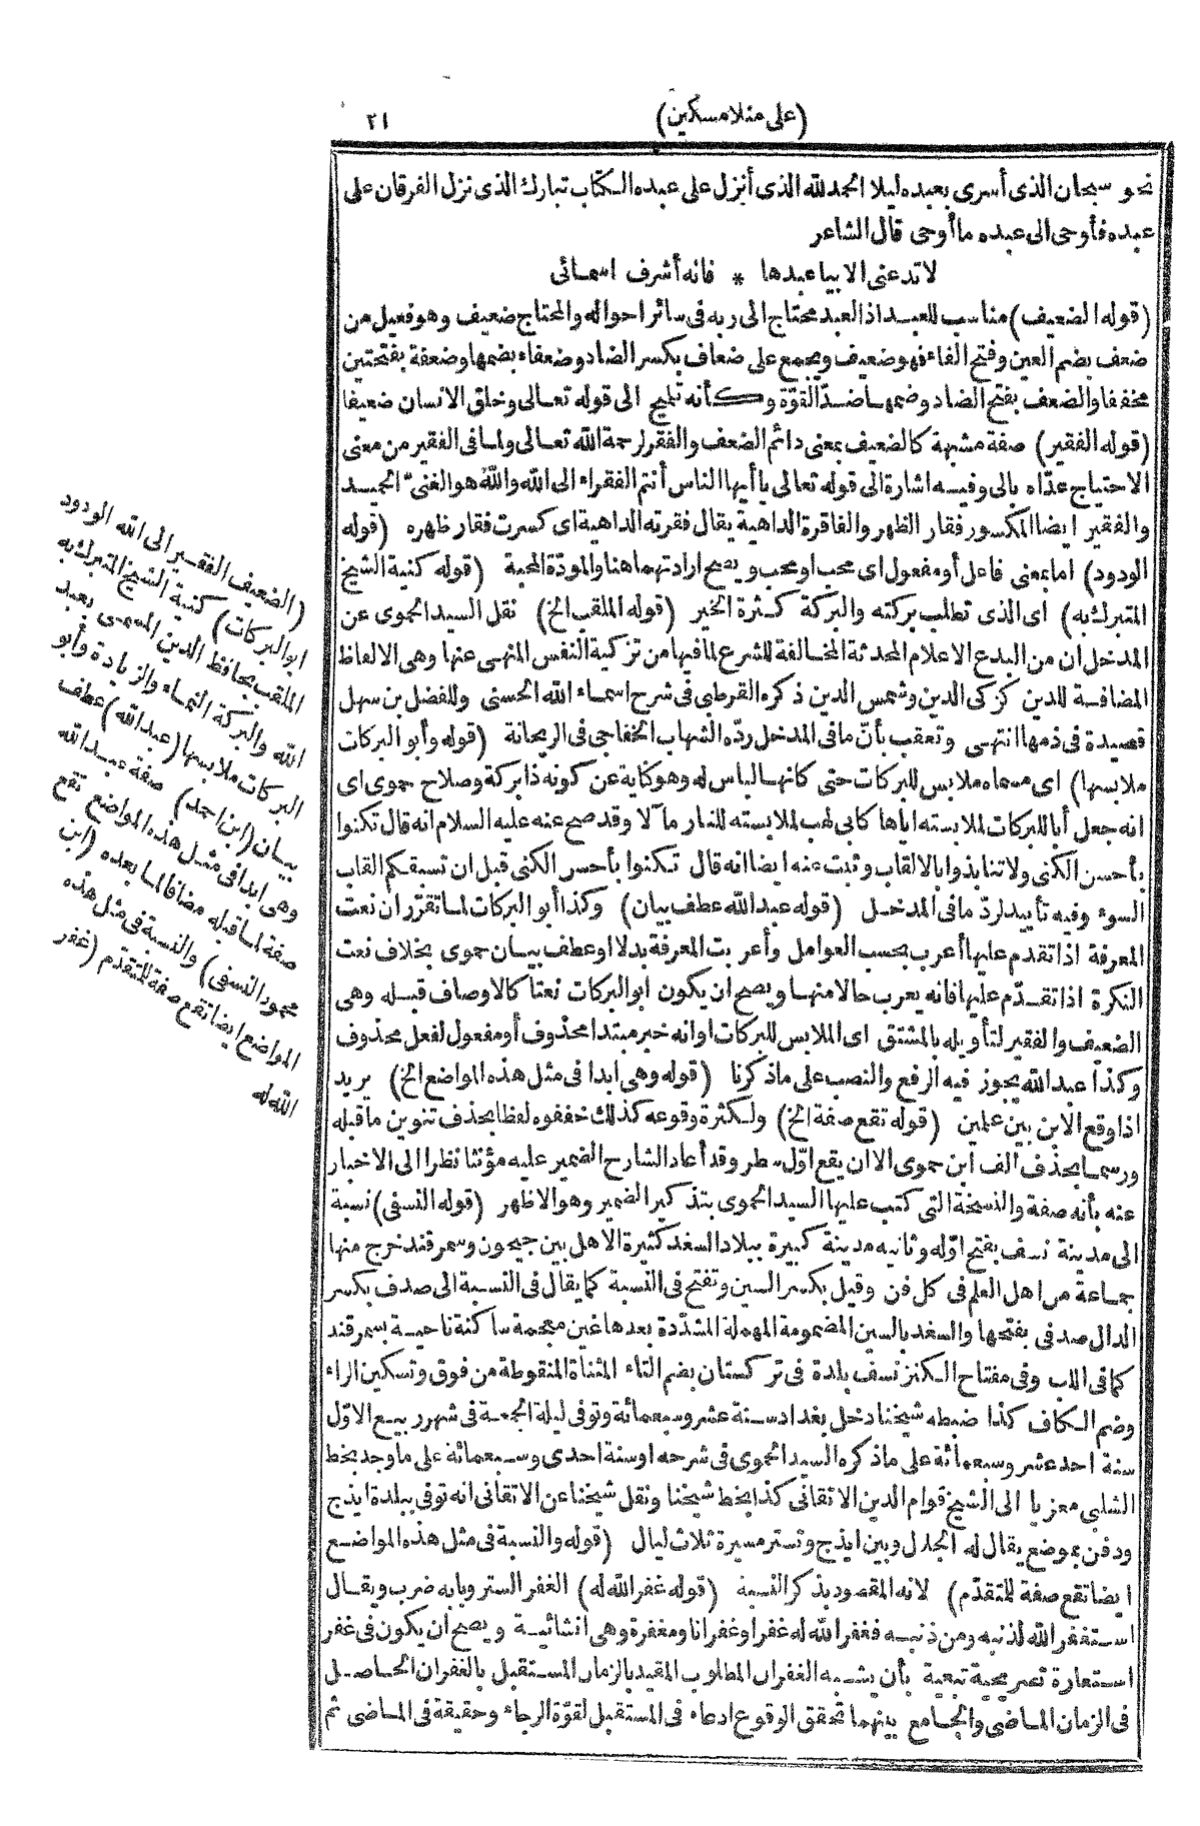 (على منلا مسكين)
٢١
نحو سبحان الذى أسرى بعبده ليلا الحمد لله الذى أنزل على عبده الكتاب تبارك الذى نزل الفرقان على
عبده فأوحى الى عبده ما أوحى قال الشاعر
لا تدعنى الا بيا عبدها * فانه أشرف اسمائى
(قوله الضعيف) مناسب للعبد اذ العبد محتاج الى ربه فى سائر احواله والمحتاج ضعيف وهو فعيل من
ضعف بضم العين وفتح الفاء فهو ضعيف ويجمع على ضعاف بكسر الضاد وضعفاء بضمها وضعفة بفتحتين
مخففا والضعف بفتح الضاد وضمها ضدّ القوّة وكأنه تلميح الى قوله تعالى وخلق الانسان ضعيفا
(قوله الفقير) صفة مشبهة كالضعيف بمعنى دائم الضعف والفقر لرحمة الله تعالى ولما فى الفقير من معنى
الاحتياج عدّاه بالى وفيه اشارة الى قوله تعالى يا أيها الناس أنتم الفقراء الى الله والله هو الغنىّ الحميد
والفقير ايضا المكسور فقار الظهر والفاقرة الداهية يقال فقرته الداهية اى كسرت فقار ظهره (قوله
الودود) اما بمعنى فاعل أو مفعول اى محب او محب ويصح ارادتهما هنا والمودّة المحبة (قوله كنية الشيخ
المتبرك به) اى الذى تطلب بركته والبركة كثرة الخير (قوله الملقب الخ) نقل السيد الحموى عن
المدخل ان من البدع الاعلام المحدثة المخالفة للشرع لما فيها من تزكية النفس المنهى عنها وهى الالفاظ
المضافة للدين كزكى الدين وشمس الدين ذكره القرطبى فى شرح اسماء الله الحسنى وللفضل بن سهل
قصيدة فى ذمها انتهى وتعقب بأنّ ما فى المدخل ردّه الشهاب الخفاجى فى الريحانة (قوله وأبو البركات
ملابسها) اى مسماه ملابس للبركات حتى كانها لباس له وهو كناية عن كونه ذا بركة وصلاح حموى اى
انه جعل أبا للبركات لملابسته اياها كابى لهب لملابسته للنار مآلا وقد صح عنه عليه السلام انه قال تكنوا
بأحسن الكنى ولا تنابذوا بالالقاب وثبت عنه ايضا انه قال تكنوا بأحسن الكنى قبل ان تسبقكم القاب
السوء وفيه تأييد لردّ ما فى المدخل (قوله عبد الله عطف بيان) وكذا أبو البركات لما تقرّر ان نعت
المعرفة اذا تقدم عليها أعرب بحسب العوامل وأعربت المعرفة بدلا او عطف بيان حموى بخلاف نعت
النكرة اذا تقدّم عليها فانه يعرب حالا منها ويصح ان يكون ابو البركات نعتا كالاوصاف قبله وهى
الضعيف والفقير لتأويله بالمشتق اى الملابس للبركات او انه خبر مبتدا محذوف أو مفعول لفعل محذوف
وكذا عبد الله يجوز فيه الرفع والنصب على ما ذكرنا (قوله وهى ابدا فى مثل هذه المواضع الخ) يريد
اذا وقع الابن بين علمين (قوله تقع صفة الخ) ولكثرة وقوعه كذلك خففوه لفظا بحذف تنوين ما قبله
ورسما بحذف الف ابن حموى الا ان يقع اوّل سطر وقد أعاد الشارح الضمير عليه مؤنثا نظرا الى الاخبار
عنه بأنه صفة والنسخة التى كتب عليها السيد الحموى بتذكير الضمير وهو الاظهر (قوله النسفى) نسبة
الى مدينة نسف بفتح اوّله وثانيه مدينة كبيرة ببلاد السغد كثيرة الاهل بين جيحون وسمرقند خرج منها
جماعة من اهل العلم فى كل فن وقيل بكسر السين وتفتح فى النسبة كما يقال فى النسبة الى صدف بكسر
الدال صدفى بفتحها والسغد بالسين المضمومة المهملة المشدّدة بعدها غين معجمة ساكنة ناحية بسمرقند
كما فى اللب وفى مفتاح الكنز نسف بلدة فى تركستان بضم التاء المثناة المنقوطة من فوق وتسكين الراء
وضم الكاف كذا ضبطه شيخنا دخل بغداد سنة عشر وسبعمائة وتوفى ليلة الجمعة فى شهر ربيع الاوّل
سنة احد عشر وسبعمائة على ما ذكره السيد الحموى فى شرحه او سنة احدى وسبعمائة على ما وجد بخط
الشلبى معزيا الى الشيخ قوام الدين الاتقانى كذا بخط شيخنا ونقل شيخنا عن الاتقانى انه توفى ببلدة ايذج
ودفن بموضع يقال له الجلال وبين ايذج وتستر مسيرة ثلاث ليال (قوله والنسبة فى مثل هذه المواضع
ايضا تقع صفة للمتقدّم) لانه المقصود بذكر النسبة (قوله غفر الله له) الغفر الستر وبابه ضرب ويقال
استغفر الله لذنبه ومن ذنبه فغفر الله له غفرا وغفرانا ومغفرة وهى انشائية ويصح ان يكون فى غفر
استعارة تصريحية تبعية بأن يشبه الغفران المطلوب المقيد بالزمان المستقبل بالغفران الحاصل
فى الزمان الماضى والجامع بينهما تحقق الوقوع ادعاء فى المستقبل لقوّة الرجاء وحقيقة فى الماضى ثم
(الضعيف الفقير الى الله الودود
ابو البركات) كنية الشيخ المتبرك به
الملقب بحافظ الدين المسمى بعبد
الله والبركة النماء والزيادة وأبو
البركات ملابسها (عبد الله) عطف
بيان (ابن احمد) صفة عبد الله
وهى ابدا فى مثل هذه المواضع تقع
صفة لما قبله مضافا لما بعده (ابن
محمود النسفى) والنسبة فى مثل هذه
المواضع ايضا تقع صفة للمتقدّم (غفر
الله له